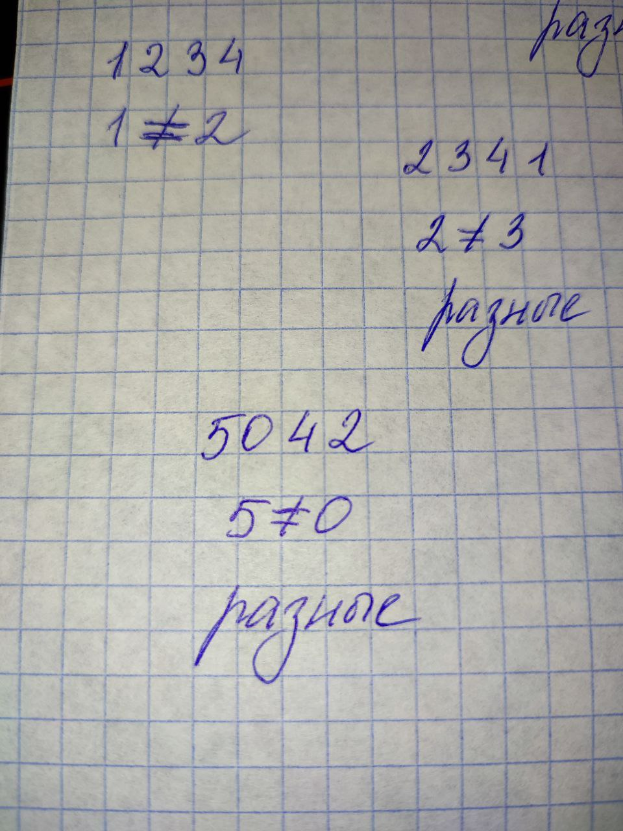 1 2 3 4
1 ≠ 2
2 3 4 1
2 ≠ 3
разные
5 0 4 2
5 ≠ 0
разные